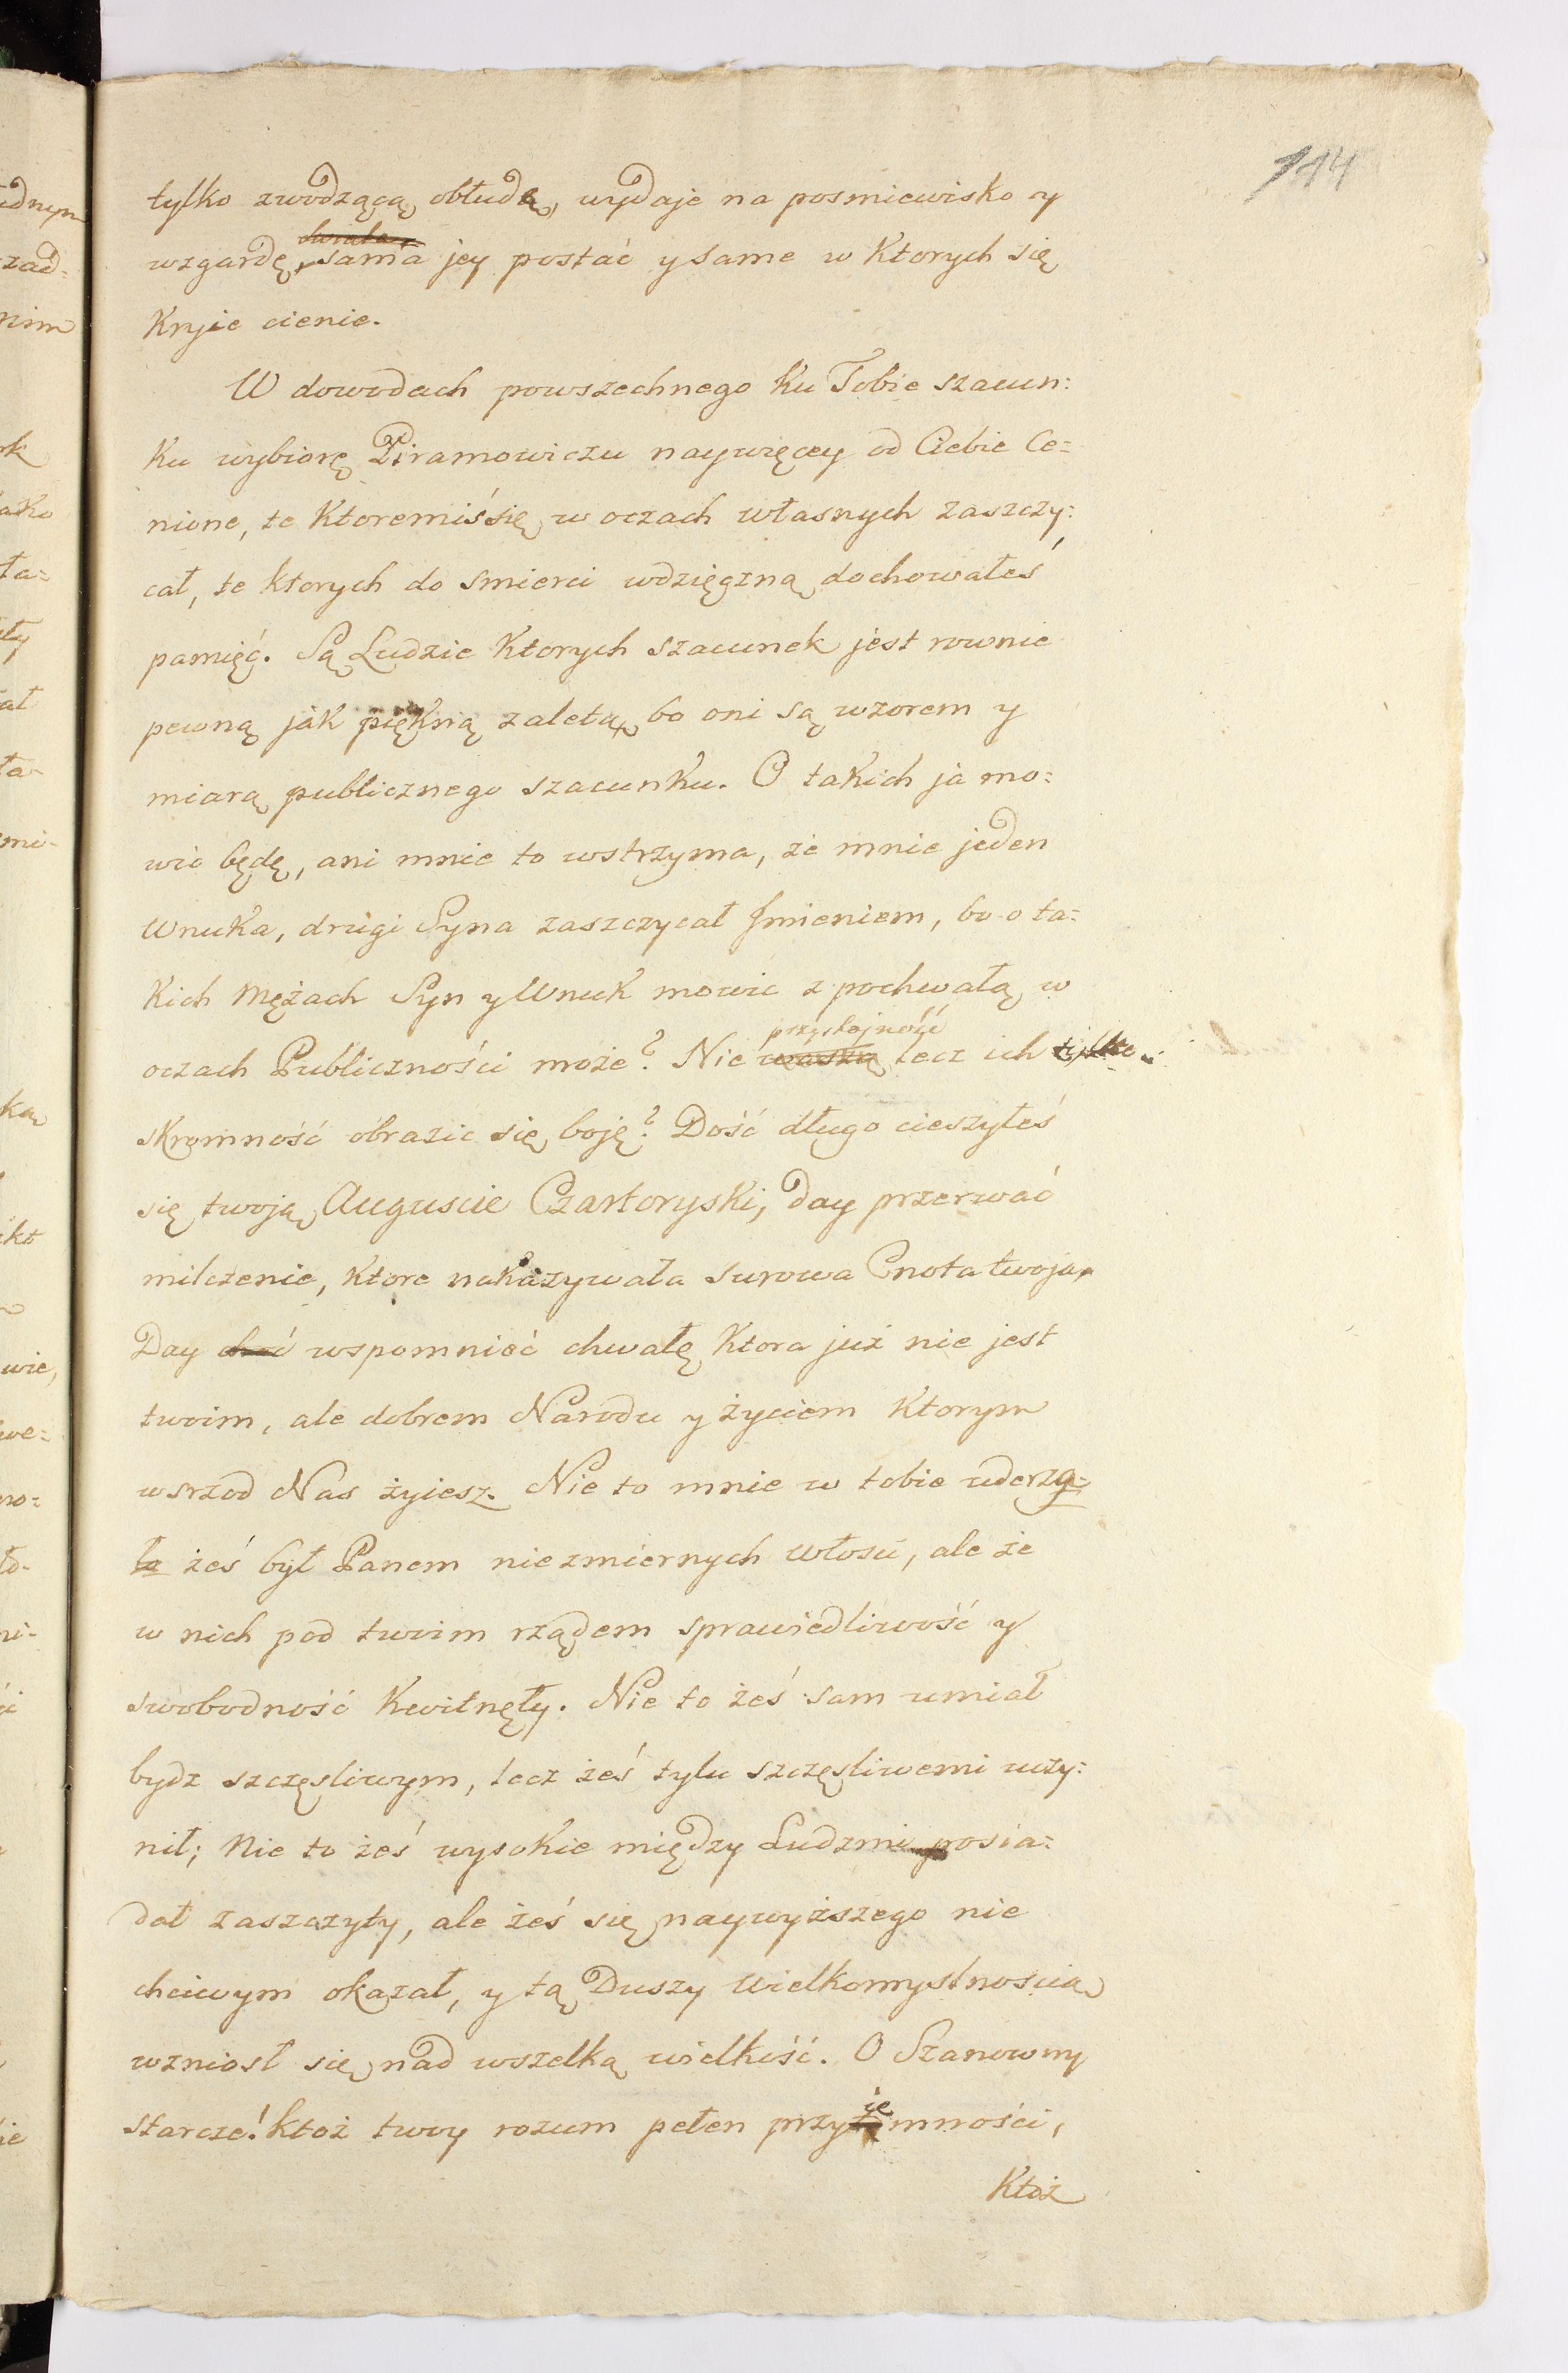 114
tylko zwodzącą obłudę, wydaje na posmiewisko y
wzgardę, sama jey postać y same w Ktorych się
Kryie cienie.
W dowodach powszechnego Ku Tobie szacun:
Ku wybiorę Piramowiczu naywięcey od Ciebie Ce=
nione, te Ktoremiś się w oczach własnych zaszczy:
cał, te ktorych do smierci wdzięczną dochowałeś
pamięć. Są Ludzie Ktorych szacunek jest rownie
pewną jak piękną zaletą, bo oni są wzorem y
miarą publicznego szacunku. O takich ja mo:
wić będę, ani mnie to wstrzyma, że mnie jeden
Wnuka, drugi Syna zaszczycał Jmieniem, bo o ta=
Kich Mężach Syn y Wnuk mowić z pochwałą w
oczach Publiczności może? Nie waszą przystojność lecz ich tylko
skromność obrazić się boję? Dość długo cieszyłeś
się twoją Auguscie Czartoryski, day przerwać
milczenie, Ktore nakazywała surowa Cnota twoja,
Day choć wspomnieć chwałę Ktora już nie jest
twoim, ale dobrem Narodu y życiem Ktorym
wsrzod Nas żyiesz. Nie to mnie w tobie uderzy=
ła żeś był Panem niezmiernych włości, ale że
w nich pod twoim rządem sprawiedliwość y
swobodność Kwitnęły. Nie to żeś sam umiał
bydz szczęsliwym, lecz żeś tylu szczęsliwemi uczy:
nił; Nie to żeś wysokie między Ludzmi posia=
dał zaszczyty, ale żeś się naywyższego nie
chciwym okazał, y tą Duszy wielkomyslnoscią
wzniosł się nad wszelką wielkość. O Szanowny
starcze! ktoż twoy rozum pełen przyiemności,
Ktoż